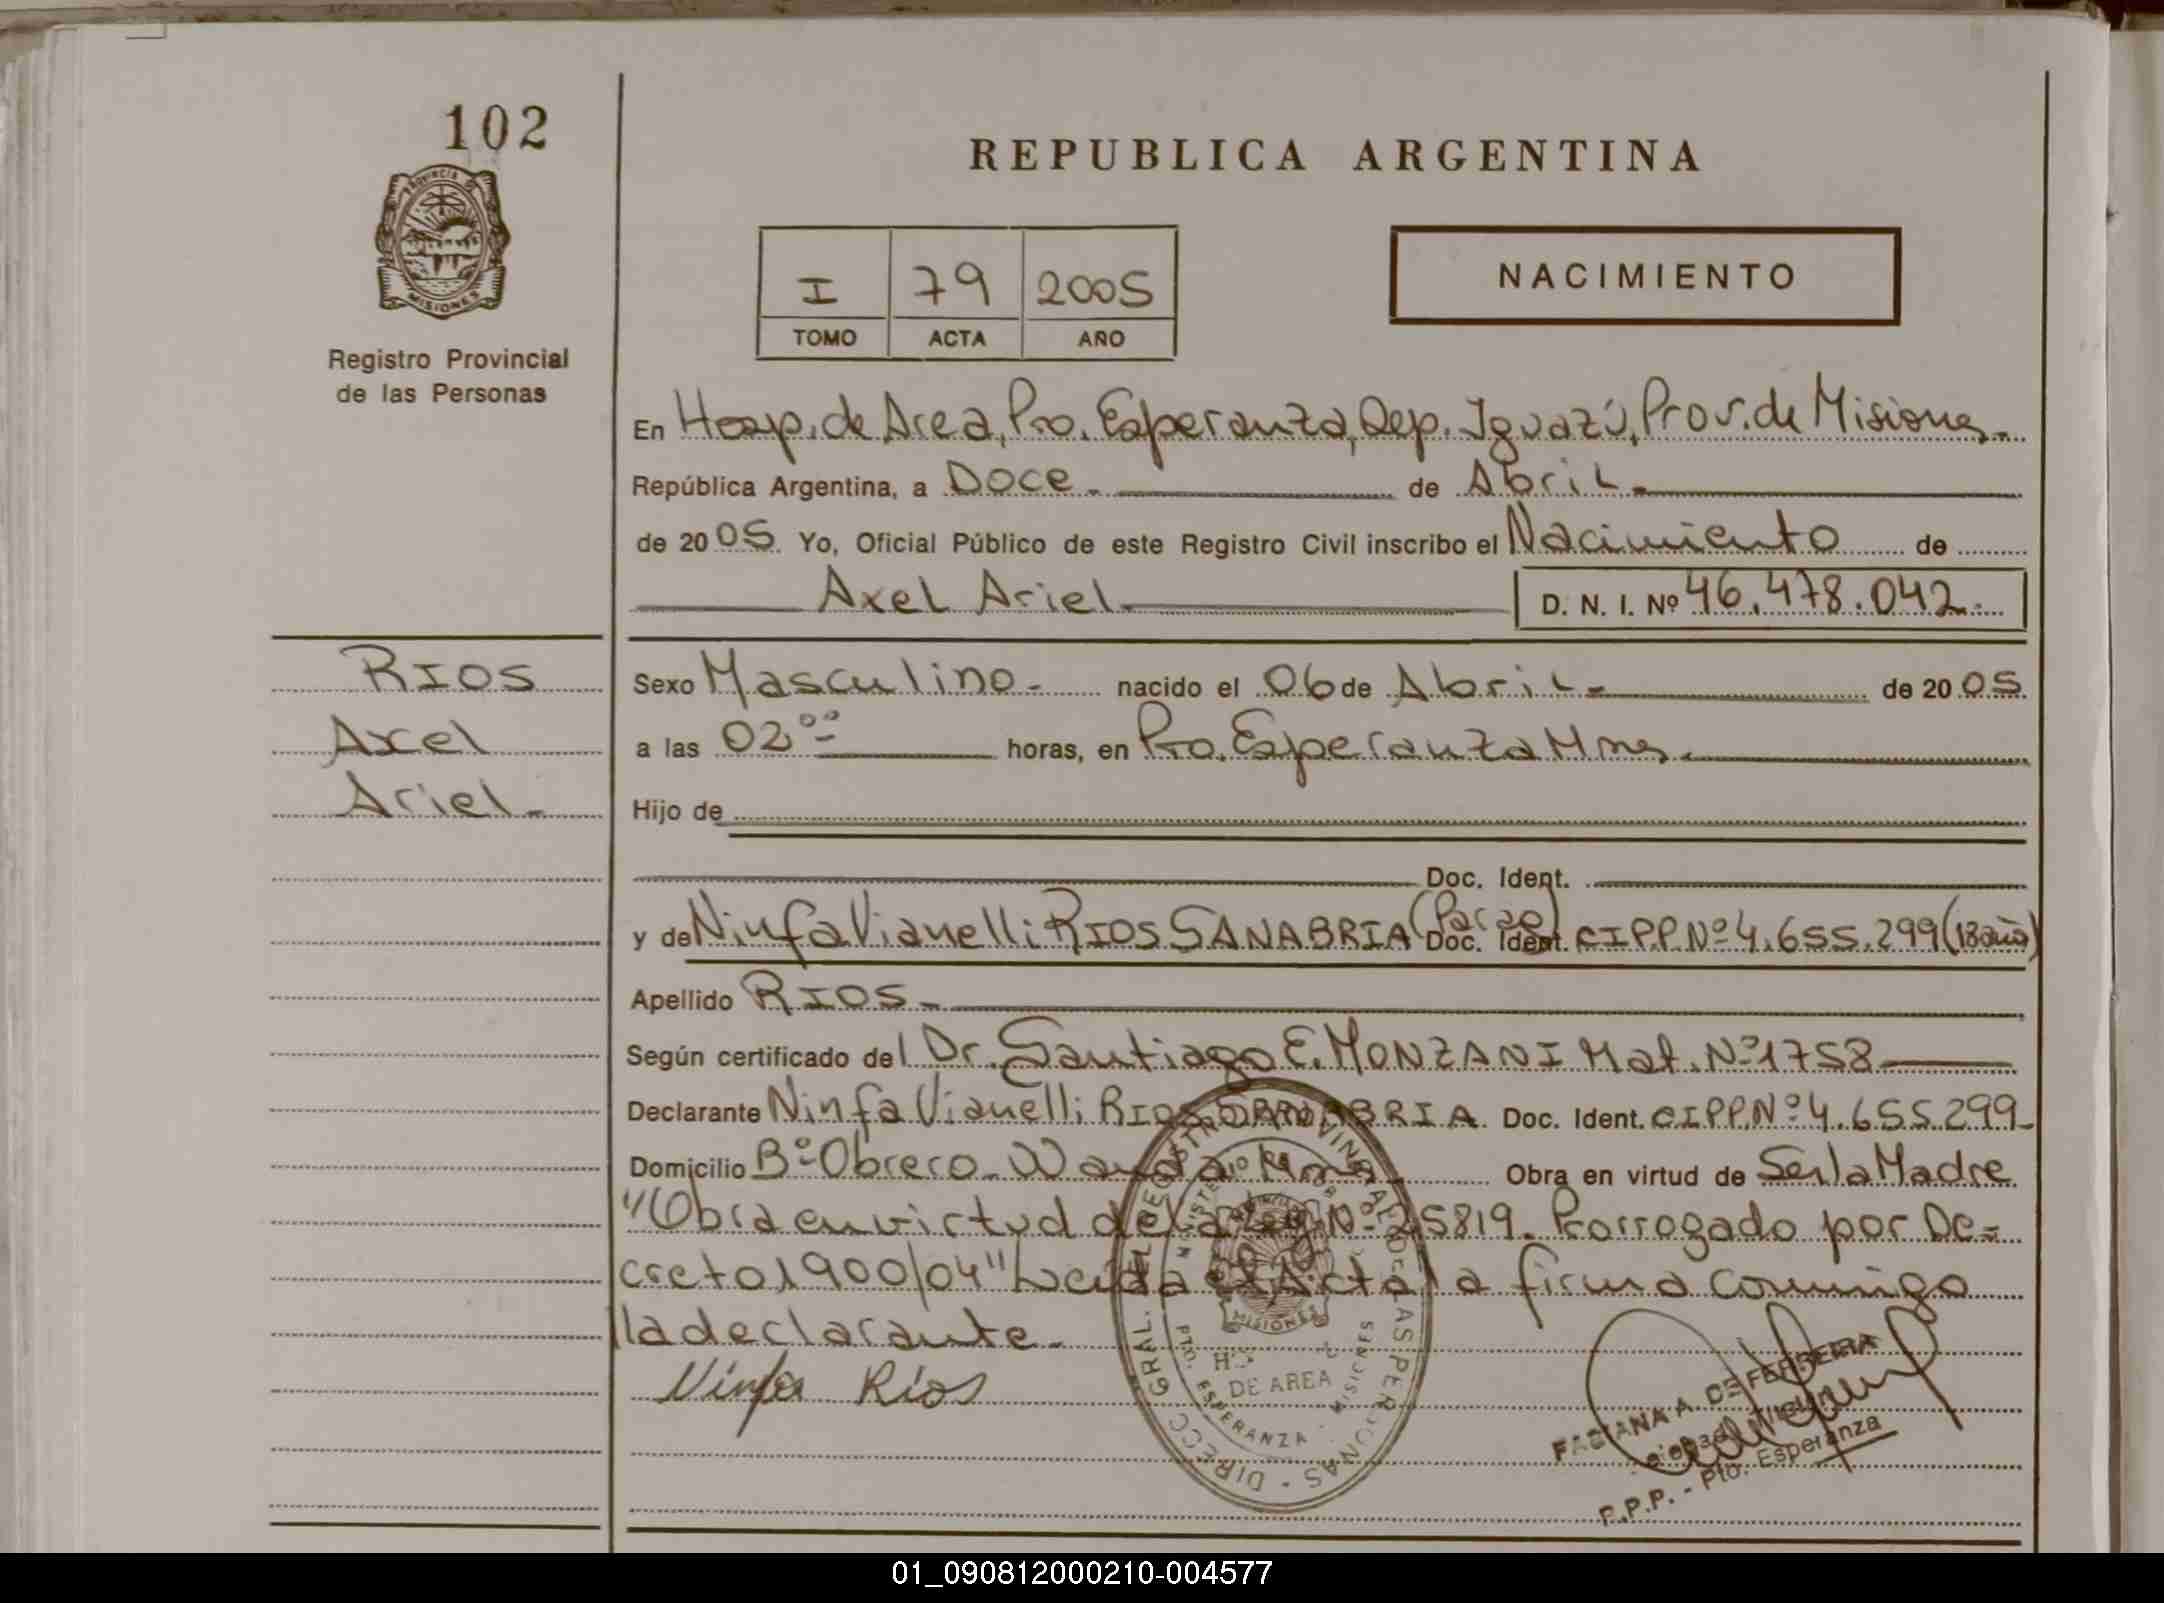 102
PROVINCIA DE
MISIONES
Registro Provincial
de las Personas
REPUBLICA ARGENTINA
I 79 2005
TOMO ACTA AÑO
NACIMIENTO
En Hosp. de Area, Pto. Esperanza, Dep. Iguazú, Prov. de Misiones.
República Argentina, a Doce. de Abril.
de 2005. Yo, Oficial Público de este Registro Civil inscribo el Nacimiento de
Axel Ariel. D. N. I. Nº 46.478.042.
RIOS
Axel
Ariel.
Sexo Masculino. nacido el 06 de Abril. de 2005.
a las 02ºº horas, en Pto. Esperanza Mnes.
Hijo de
Doc. Ident.
y de Ninfa Vianelli RIOS SANABRIA (Parag) Doc. Ident. CIPP. Nº 4.655.299 (18 años)
Apellido RIOS.
Según certificado del Dr. Santiago E. MONZANI Mat. Nº 1758
Declarante Ninfa Vianelli RIOS SANABRIA. Doc. Ident. CIPP. Nº 4.655.299
Domicilio Bº Obrero. Wanda Mnes. Obra en virtud de Ser la Madre
"Obra en virtud de la Ley Nº 25819. Prorrogado por De=
creto 1900/04" Leida el Acta la firma conmigo
la declarante.
Ninfa Rios
DIRECC. GRAL. DEL REGISTRO PROVINCIAL DE LAS PERSONAS
MISIONES
DE AREA
PTO. ESPERANZA - MISIONES
FABIANA A. DE FERREIRA
Pto. Esperanza
R.P.P. -
01_090812000210-004577